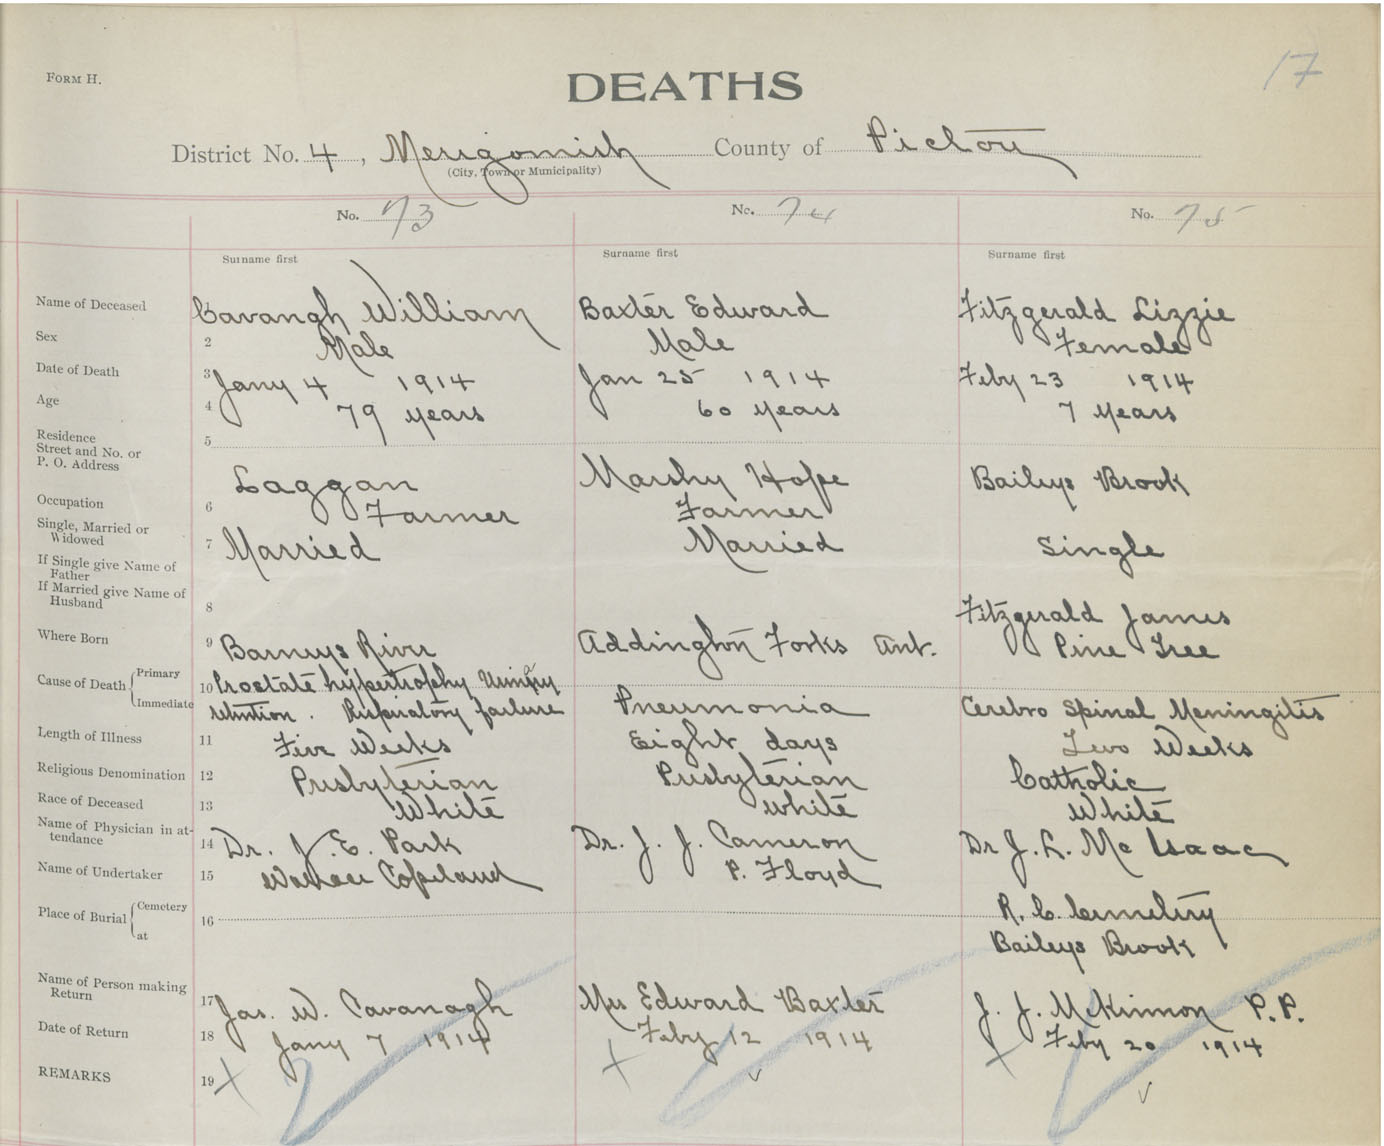 17
FORM H.
DEATHS
District No. 4, Merigomish County of Pictou
(City, Town or Municipality)
No. 73 No. 74 No. 75
Surname first Surname first Surname first
Name of Deceased 1 Cavangh William Baxter Edward Fitzgerald Lizzie
Sex 2 Male Male Female
Date of Death 3 Jany 4 1914 Jan 25 1914 Feby 23 1914
Age 4 79 years 60 years 7 Years
Residence 5
Street and No. or
P. O. Address Laggan Marshy Hope Baileys Brook
Occupation 6 Farmer Farmer
Single, Married or
Widowed 7 Married Married Single
If Single give Name of
Father
If Married give Name of
Husband 8 Fitzgerald James
Where Born 9 Barneys River Addington Forks Ant. Pine Tree
Cause of Death Primary 10 Prostate hypertrophy Urinary
Immediate retention. Respiratory failure Pneumonia Cerebro Spinal Meningitis
Length of Illness 11 Five Weeks Eight days Two Weeks
Religious Denomination 12 Presbyterian Presbyterian Catholic
Race of Deceased 13 White white White
Name of Physician in at-
tendance 14 Dr. J. E. Park Dr. J. J. Cameron Dr J. L. Mc Isaac
Name of Undertaker 15 Copeland P. Floyd
Place of Burial Cemetery 16 R. C. Cemetery
at Baileys Brook
Name of Person making
Return 17 Jas. W. Cavanagh Mrs Edward Baxter J. J. McKinnon P.P.
Date of Return 18 Jany 7 1914 Feby 12 1914 Feby 20 1914
REMARKS 19